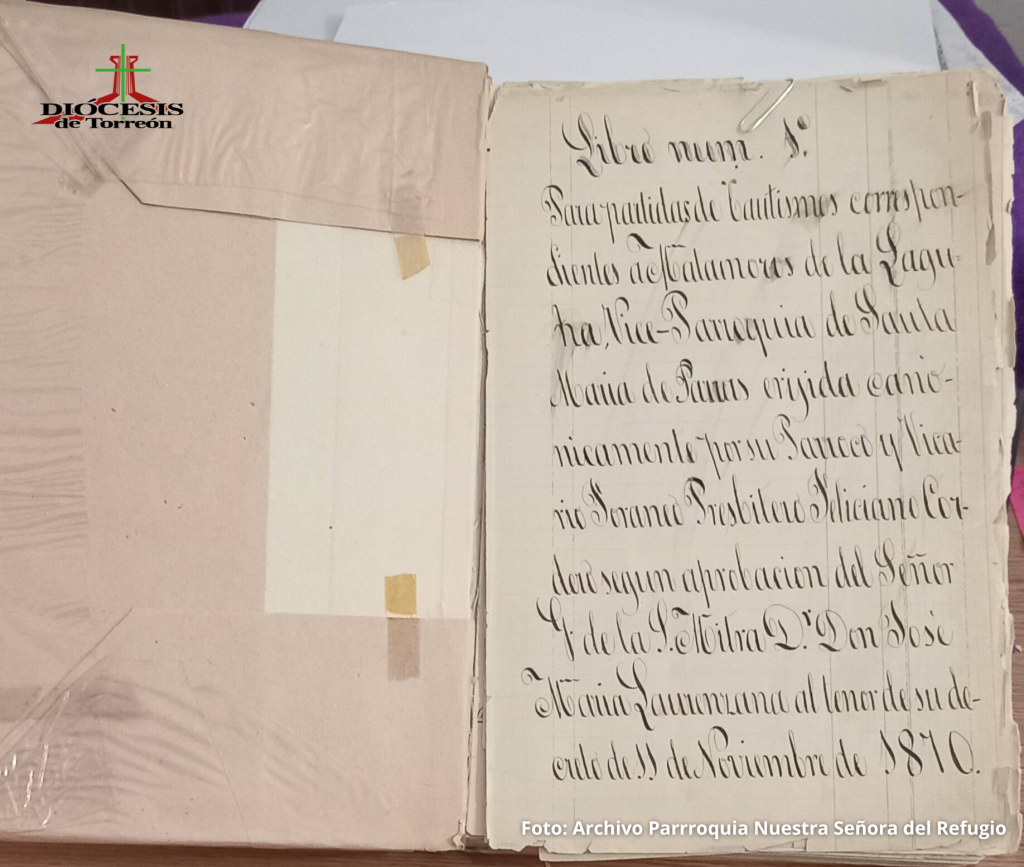 DIÓCESIS
de Torreón
Libro num. 1º
Para partidas de bautismos correspon-
dientes a Matamoros de la Lagu-
na, Vice-Parroquia de Santa
Maria de Parras erijida cano-
nicamente por su Parroco y Vica-
rio Foraneo Presbitero Feliciano Cor-
dero segun aprobacion del Señor
G. de la S. Mitra D.r Don José
Maria Laurenzana al tenor de su de-
creto de 11 de Noviembre de 1870.
Foto: Archivo Parrroquia Nuestra Señora del Refugio